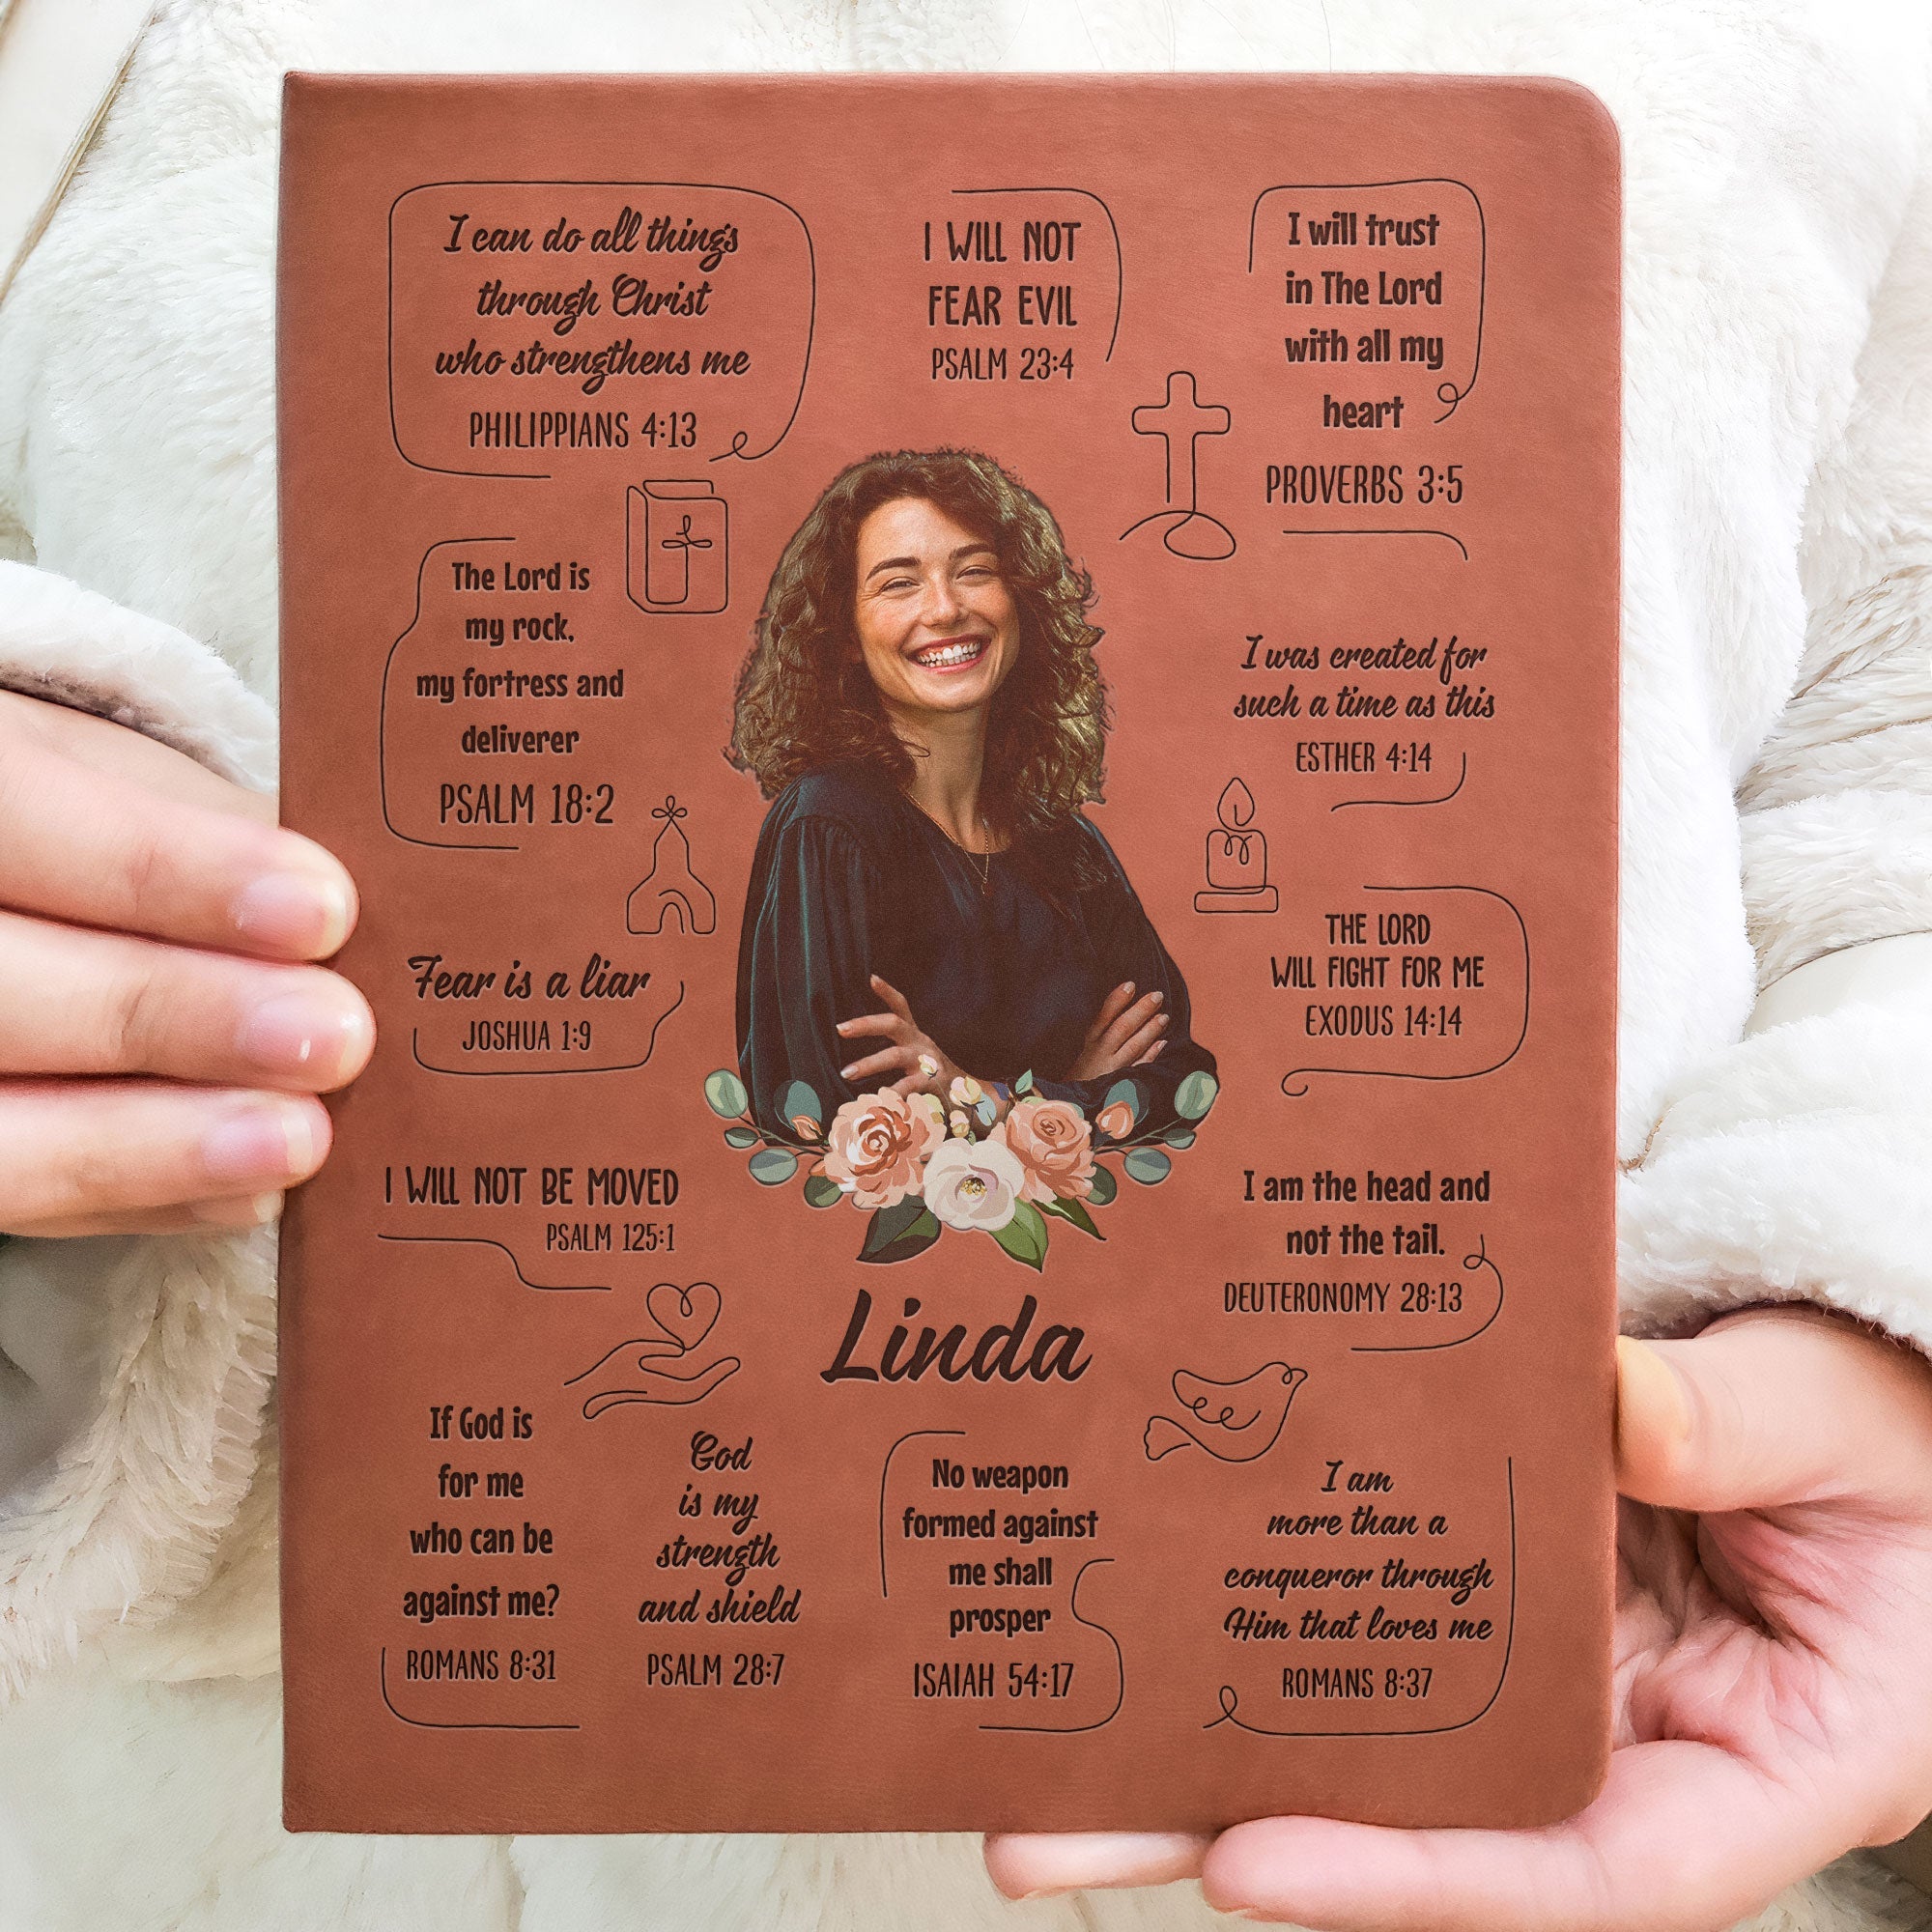 I can do all things
through Christ
who strengthens me
PHILIPPIANS 4:13
I WILL NOT
FEAR EVIL
PSALM 23:4
I will trust
in The Lord
with all my
heart
PROVERBS 3:5
The Lord is
my rock,
my fortress and
deliverer
PSALM 18:2
I was created for
such a time as this
ESTHER 4:14
Fear is a liar
JOSHUA 1:9
THE LORD
WILL FIGHT FOR ME
EXODUS 14:14
I WILL NOT BE MOVED
PSALM 125:1
I am the head and
not the tail.
DEUTERONOMY 28:13
Linda
If God is
for me
who can be
against me?
ROMANS 8:31
God
is my
strength
and shield
PSALM 28:7
No weapon
formed against
me shall
prosper
ISAIAH 54:17
I am
more than a
conqueror through
Him that loves me
ROMANS 8:37